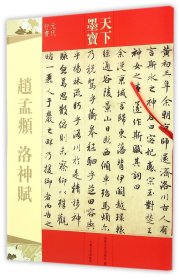 天下
墨寶
元代
行書
趙孟頫 洛神賦
黃初三年余朝京師還濟洛川古人有
言斯水之神名曰宓妃感宋玉對楚王
神女之事遂作斯賦其詞曰
余從京域言歸東藩背伊闕越轘轅
經通谷陵景山日既西傾車殆馬煩
乃稅駕乎蘅皋秣駟乎芝田容與
乎楊林流眄乎洛川於是精移神
駭忽焉思散俯則未察仰以殊觀